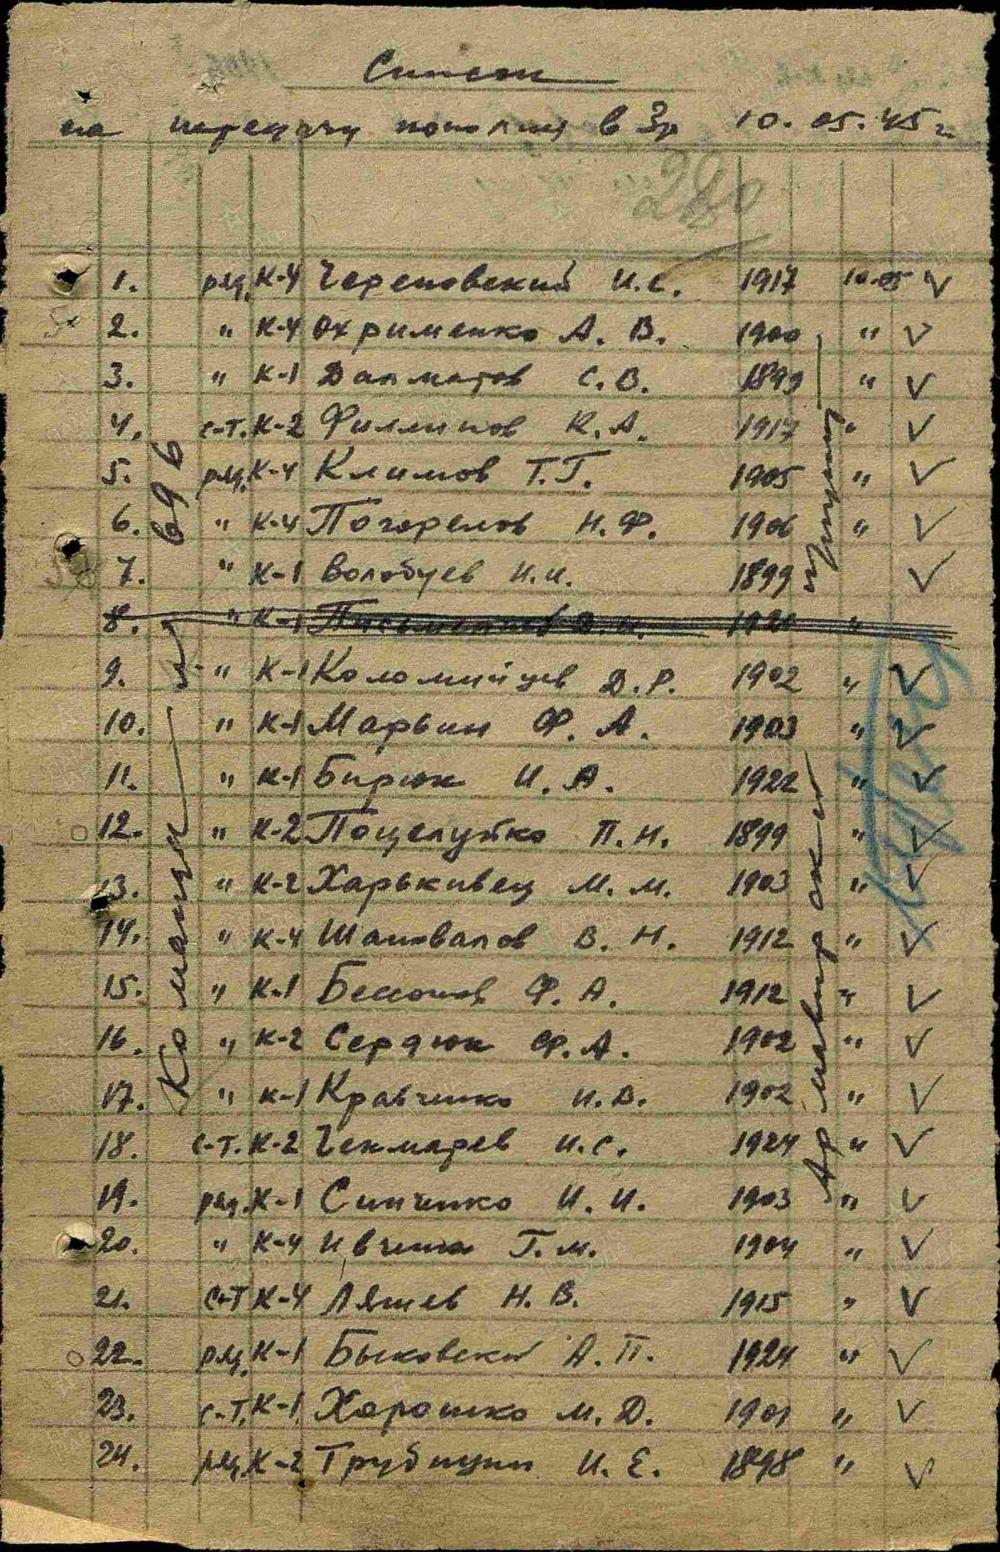 Список
на передачу пополн в Зр 10.05.45 г.
1. ряд. К-4 Череповский И.С. 1917 10.05 ✓
2. " К-4 Охрименко А. В. 1900 " ✓
3. " К-1 Далматов С. В. 1899 " ✓
4. с-т. К-2 Филлипов К. А. 1917 " ✓
5. ряд. К-4 Климов Т. Г. 1905 " ✓
6. " К-4 Погорелов Н. Ф. 1906 " ✓
7. " К-1 Волобуев И. И. 1899 ✓
8. " К-1 "
9. " К-1 Коломийцев Д. Р. 1902 " ✓
10. " К-1 Марьин Ф. А. 1903 " ✓
11. " К-1 Бирюк И. А. 1922 " ✓
12. " К-2 Поцелуйко П. Н. 1899 " ✓
13. " К-2 Харькивец М. М. 1903 " ✓
14. " К-4 Шаповалов В. Н. 1912 " ✓
15. " К-1 Бессонов Ф. А. 1912 " ✓
16. " К-2 Сердюк Ф. А. 1902 " ✓
17. " К-1 Кравченко И. В. 1902 " ✓
18. с-т. К-2 Чекмарев И. С. 1924 " ✓
19. ряд. К-1 Синченко И. И. 1903 " ✓
20. " К-4 Г. М. 1904 " ✓
21. с-т К-4 Ляшев Н. В. 1915 " ✓
22. ряд. К-1 Быковский А. П. 1924 " ✓
23. с-т. К-1 Харошко М. Д. 1901 " ✓
24. ряд. К-2 Трубицин И. Е. 1898 " ✓
696